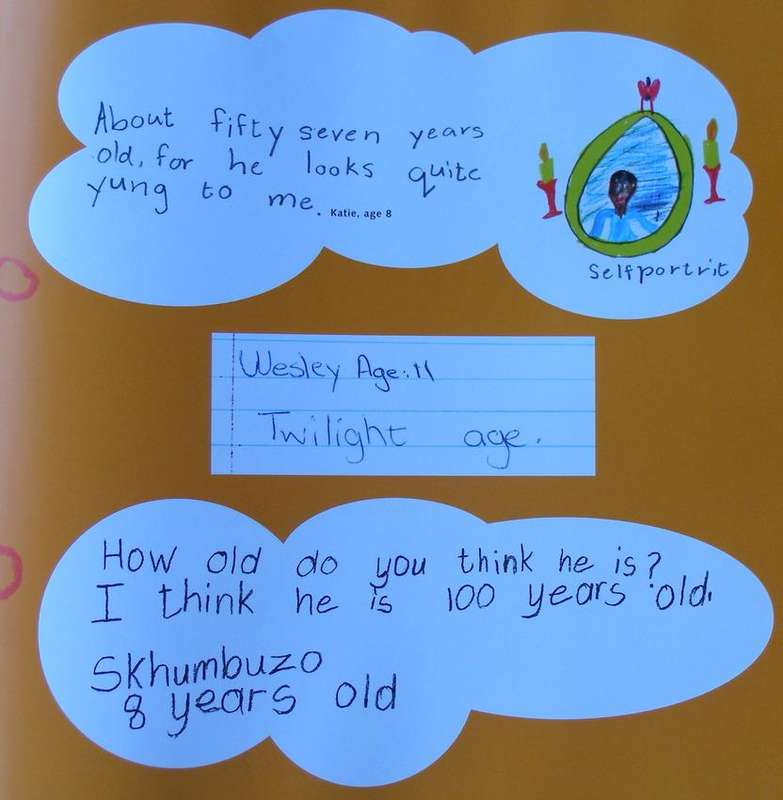 About fifty seven years
old, for he looks quite
yung to me. Katie, age 8
Selfportrit
Wesley Age: 11
Twilight age.
How old do you think he is?
I think he is 100 years old.
Skhumbuzo
8 years old